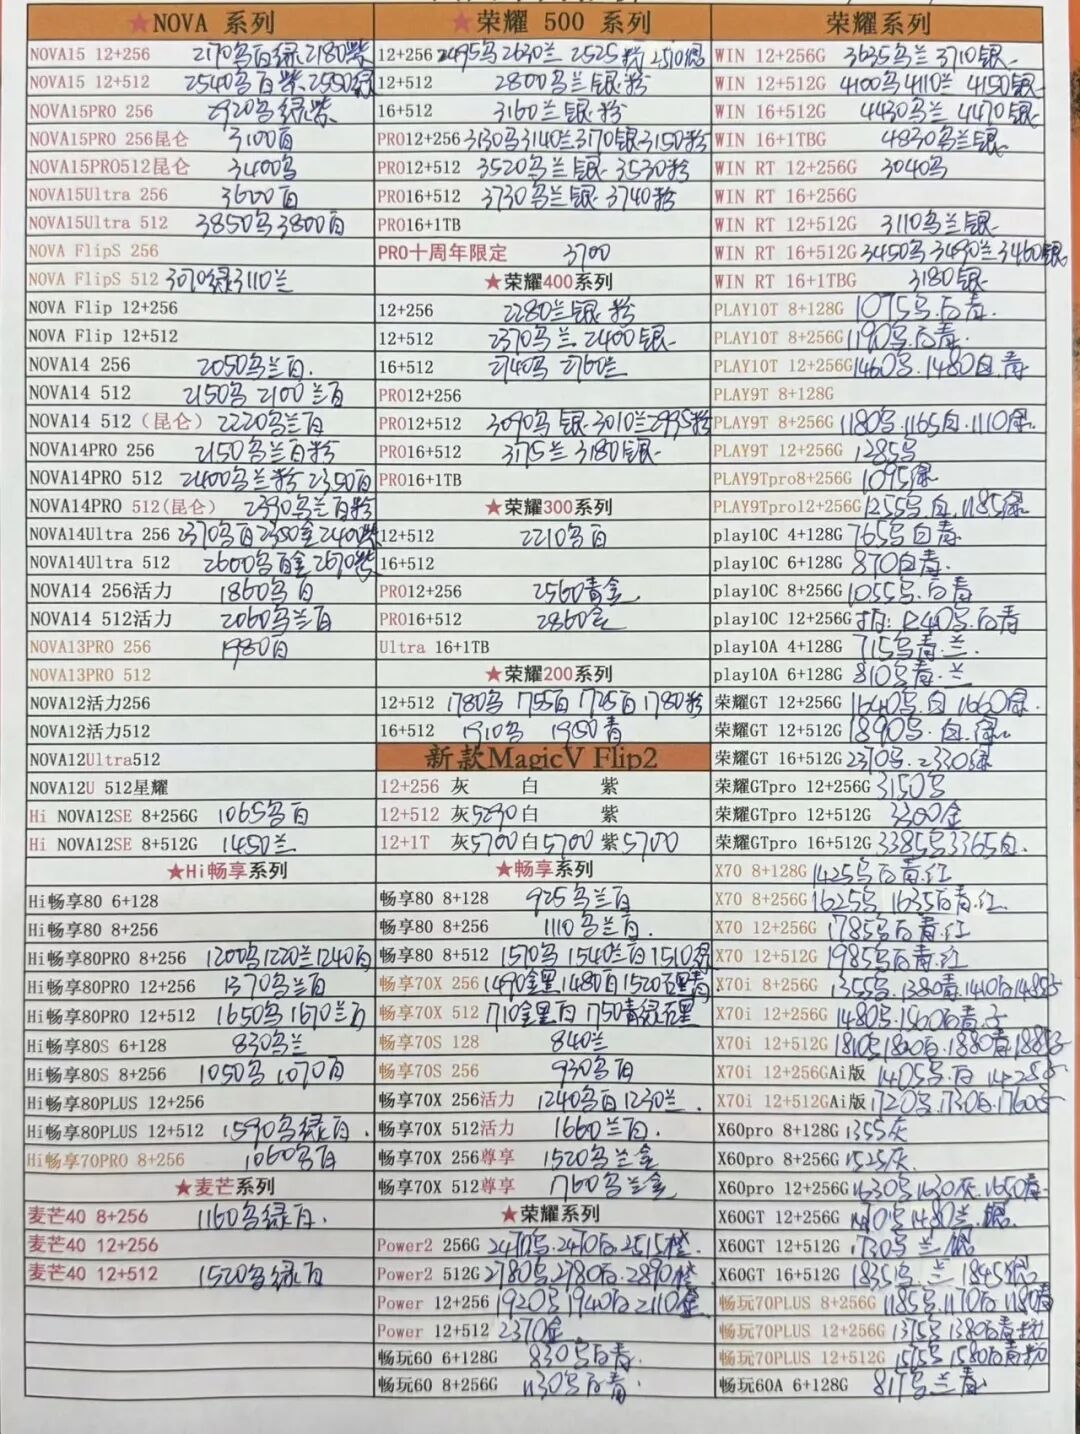 ★NOVA 系列
NOVA15 12+256 2170乌白绿2180紫
NOVA15 12+512 2540乌白紫2550绿
NOVA15PRO 256 2920乌绿紫
NOVA15PRO 256昆仑 3100白
NOVA15PRO512昆仑 3400乌
NOVA15Ultra 256 3600白
NOVA15Ultra 512 3850乌3800白
NOVA FlipS 256
NOVA FlipS 512 3070绿3110兰
NOVA Flip 12+256
NOVA Flip 12+512
NOVA14 256 2050乌兰白.
NOVA14 512 2150乌 2100兰白
NOVA14 512（昆仑） 2220乌兰白
NOVA14PRO 256 2150乌兰白粉
NOVA14PRO 512 2400乌兰粉 2350白
NOVA14PRO 512(昆仑) 2390乌兰白粉
NOVA14Ultra 256 2370乌白2350金2400紫
NOVA14Ultra 512 2600乌白金2670紫
NOVA14 256活力 1860乌白
NOVA14 512活力 2060乌兰白
NOVA13PRO 256 1980白
NOVA13PRO 512
NOVA12活力256
NOVA12活力512
NOVA12Ultra512
NOVA12U 512星耀
Hi NOVA12SE 8+256G 1065乌白
Hi NOVA12SE 8+512G 1450兰
★Hi畅享系列
Hi畅享80 6+128
Hi畅享80 8+256
Hi畅享80PRO 8+256 1200乌1220兰1240白
Hi畅享80PRO 12+256 1370乌兰白
Hi畅享80PRO 12+512 1650乌1670兰白
Hi畅享80S 6+128 830乌兰
Hi畅享80S 8+256 1050乌1070白
Hi畅享80PLUS 12+256
Hi畅享80PLUS 12+512 1590乌绿白.
Hi畅享70PRO 8+256 1060乌白
★麦芒系列
麦芒40 8+256 1160乌绿白.
麦芒40 12+256
麦芒40 12+512 1520乌绿白
★荣耀 500 系列
12+256 2495乌2630兰 2525粉 2510银
12+512 2800乌兰银粉
16+512 3160兰银粉
PRO12+256 3130乌3140兰3170银3150粉
PRO12+512 3520乌兰银 3530粉
PRO16+512 3730乌兰银 3740粉
PRO16+1TB
PRO十周年限定 3700
★荣耀400系列
12+256 2280兰银粉
12+512 2370乌兰 2400银
16+512 2740乌 2760兰
PRO12+256
PRO12+512 3090乌银3010兰2995粉
PRO16+512 3175兰 3180银
PRO16+1TB
★荣耀300系列
12+512 2210白
16+512
PRO12+256 2560青金
PRO16+512 2860金
Ultra 16+1TB
★荣耀200系列
12+512 1780乌 1755白 1725白 1780粉
16+512 1910乌 1950青
新款MagicV Flip2
12+256 灰 白 紫
12+512 灰5290白 紫
12+1T 灰5700白5700 紫5700
★畅享系列
畅享80 8+128 925乌兰白
畅享80 8+256 1110乌兰白.
畅享80 8+512 1570乌 1540兰白1510绿
畅享70X 256 1490金黑1480白1520石黑青
畅享70X 512 1710金黑白 1750青绿石黑
畅享70S 128 840兰
畅享70S 256 930乌白
畅享70X 256活力 1240乌白1230兰
畅享70X 512活力 1660兰白.
畅享70X 256尊享 1520乌兰金
畅享70X 512尊享 1760乌兰金
★荣耀系列
Power2 256G 2470乌.2470白.2515橙.
Power2 512G 2780乌.2780白.2890橙
Power 12+256 1920乌1940白2110金
Power 12+512 2370金
畅玩60 6+128G 830乌白青.
畅玩60 8+256G 1130乌白青.
荣耀系列
WIN 12+256G 3635乌兰3710银
WIN 12+512G 4100乌4110兰 4150银
WIN 16+512G 4430乌兰 4470银
WIN 16+1TBG 4830乌兰银
WIN RT 12+256G 3040乌
WIN RT 16+256G
WIN RT 12+512G 3110乌兰银
WIN RT 16+512G 3450乌3490兰3460银
WIN RT 16+1TBG 3180银
PLAY10T 8+128G 1075乌.白青.
PLAY10T 8+256G 1190乌.白青.
PLAY10T 12+256G 1460乌.1480白.青
PLAY9T 8+128G
PLAY9T 8+256G 1180乌.1165白.1110绿.
PLAY9T 12+256G 1285乌
PLAY9Tpro8+256G 1095绿
PLAY9Tpro12+256G 1255乌.白.1185绿
play10C 4+128G 765乌白青
play10C 6+128G 870白青.
play10C 8+256G 1055乌.白青
play10C 12+256G 1240乌.白青
play10A 4+128G 715乌青.兰.
play10A 6+128G 810乌青.兰
荣耀GT 12+256G 1640乌.白 1660绿.
荣耀GT 12+512G 1890乌.白.绿
荣耀GT 16+512G 2370乌.2330绿
荣耀GTpro 12+256G 3150乌
荣耀GTpro 12+512G 3300金
荣耀GTpro 16+512G 3385乌3365白.
X70 8+128G 1425乌白青.红
X70 8+256G 1625乌 1635白青.红.
X70 12+256G 1785乌白青.红
X70 12+512G 1985乌白青.红
X70i 8+256G 1355乌.1380青.1410白1485
X70i 12+256G 1480乌.1500白青.
X70i 12+512G 1810乌1820白.1880青1885
X70i 12+256GAi版 1405乌.白 1428
X70i 12+512GAi版 1720乌.1730白.1760
X60pro 8+128G 1355灰
X60pro 8+256G 1525灰.
X60pro 12+256G 1630乌1630灰.1650青
X60GT 12+256G 1470乌1480兰.银.
X60GT 12+512G 1730乌 兰 银
X60GT 16+512G 1835乌. 兰 1845银.
畅玩70PLUS 8+256G 1185乌.1170白1180青
畅玩70PLUS 12+256G 1375乌1380白青粉
畅玩70PLUS 12+512G 1575乌1580白青粉
畅玩60A 6+128G 817乌兰青